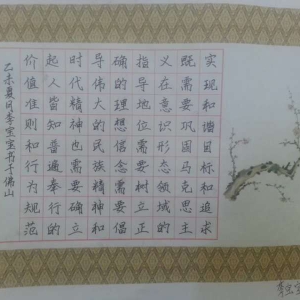 实现和谐目标和追求
既需要巩固马克思主
义在意识形态领域的
指导地位需要树立正
确的理想信念需要倡
导伟大的民族精神和
时代精神也需要确立
起人皆知普遍奉行的
价值准则和行为规范
乙未夏月李宝宝书于佛山